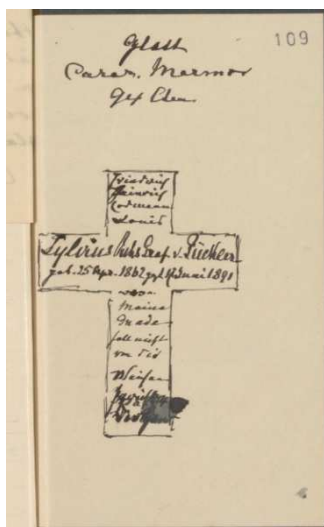 109
Glatt
Carar. Marmor
Friedrich
Heinrich
Erdmann
Louis
Sylvius Rchs Graf v. Pückler
geb. 25 Apr. 1862 gest. Juni 1891
meine
Gnade
soll nicht
von dir
Weichen